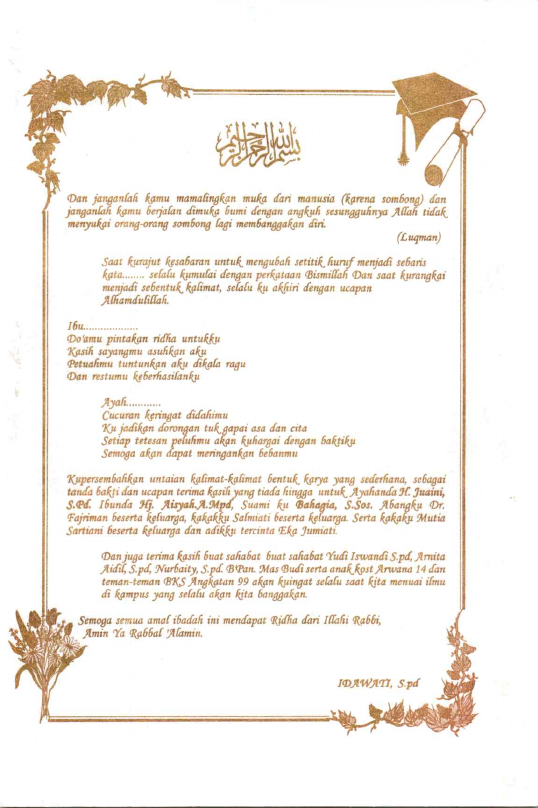 بسم الله الرحمن الرحيم
Dan janganlah kamu mamalingkan muka dari manusia (karena sombong) dan
janganlah kamu berjalan dimuka bumi dengan angkuh sesungguhnya Allah tidak
menyukai orang-orang sombong lagi membanggakan diri.
(Luqman)
Saat kurajut kesabaran untuk mengubah setitik huruf menjadi sebaris
kata........ selalu kumulai dengan perkataan Bismillah Dan saat kurangkai
menjadi sebentuk kalimat, selalu ku akhiri dengan ucapan
Alhamdulillah.
Ibu...................
Do'amu pintakan ridha untukku
Kasih sayangmu asuhkan aku
Petuahmu tuntunkan aku dikala ragu
Dan restumu keberhasilanku
Ayah............
Cucuran keringat didahimu
Ku jadikan dorongan tuk gapai asa dan cita
Setiap tetesan peluhmu akan kuhargai dengan baktiku
Semoga akan dapat meringankan bebanmu
Kupersembahkan untaian kalimat-kalimat bentuk karya yang sederhana, sebagai
tanda bakti dan ucapan terima kasih yang tiada hingga untuk Ayahanda H. Juaini,
S.Pd. Ibunda Hj. Aisyah.A.Mpd, Suami ku Bahagia, S.Sos. Abangku Dr.
Fajriman beserta keluarga, kakakku Salmiati beserta keluarga. Serta kakaku Mutia
Sartiani beserta keluarga dan adikku tercinta Eka Jumiati.
Dan juga terima kasih buat sahabat buat sahabat Yudi Iswandi S.pd, Arnita
Aidil, S.pd, Nurbaity, S.pd. BPan. Mas Budi serta anak kost Arwana 14 dan
teman-teman BKS Angkatan 99 akan kuingat selalu saat kita menuai ilmu
di kampus yang selalu akan kita banggakan.
Semoga semua amal ibadah ini mendapat Ridha dari Illahi Rabbi,
Amin Ya Rabbal 'Alamin.
IDAWATI, S.pd